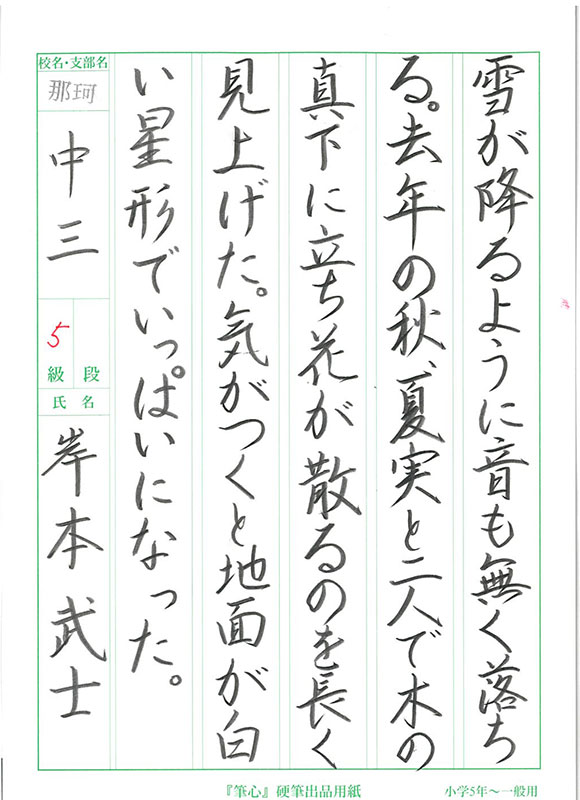 雪が降るように音も無く落ち
る。去年の秋、夏実と二人で木の
真下に立ち花が散るのを長く
見上げた。気がつくと地面が白
い星形でいっぱいになった。
校名・支部名
那珂
中三
5
級 段
氏名
岸本武士
『筆心』硬筆出品用紙
小学5年〜一般用